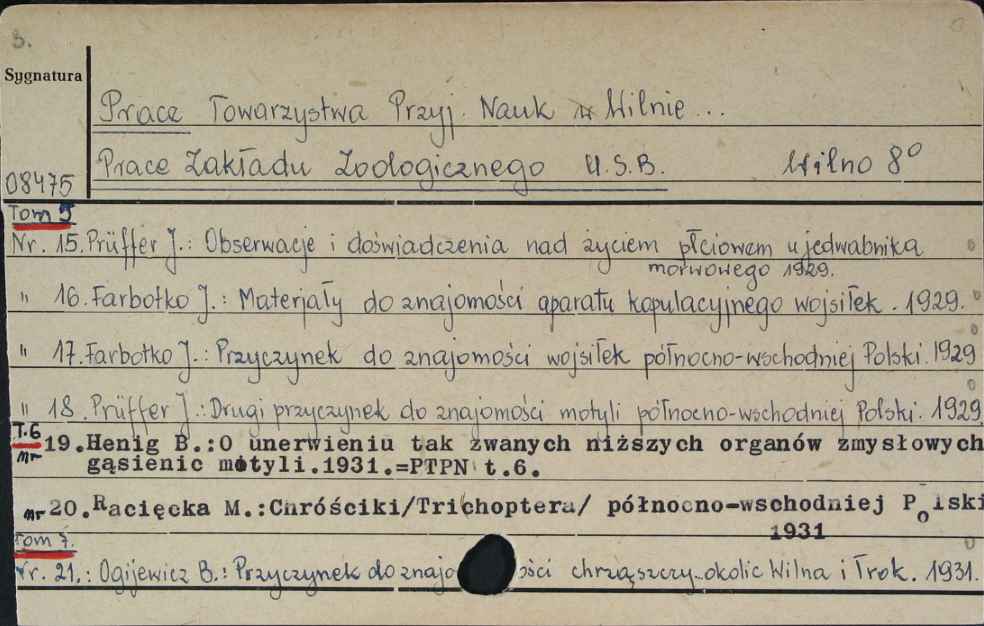 3.
Sygnatura
Prace Towarzystwa Przyj. Nauk w Wilnie...
Prace Zakładu Zoologicznego U.S.B. Wilno 8°
08475
Tom 5
Nr. 15. Prüffer J.: Obserwacje i doświadczenia nad życiem płciowem u jedwabnika
morwowego 1929.
" 16. Farbotko J.: Materjały do znajomości aparatu kopulacyjnego wojsiłek. 1929.
" 17. Farbotko J.: Przyczynek do znajomości wojsiłek północno-wschodniej Polski. 1929
" 18. Prüffer J.: Drugi przyczynek do znajomości motyli północno-wschodniej Polski. 1929
T.6
Nr 19. Henig B.:O unerwieniu tak zwanych niższych organów zmysłowych
gąsienic motyli.1931.=PTPN t.6.
Nr 20. Racięcka M.:Chróściki/Trichoptera/ północno-wschodniej Polski
1931
Tom 7.
Nr. 21.: Ogijewicz B.: Przyczynek do znajo ości chrząszczy okolic Wilna i Trok. 1931.